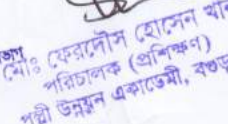 মোঃ ফেরদৌস হোসেন খান
পরিচালক (প্রশিক্ষণ)
পল্লী উন্নয়ন একাডেমী, বগুড়া